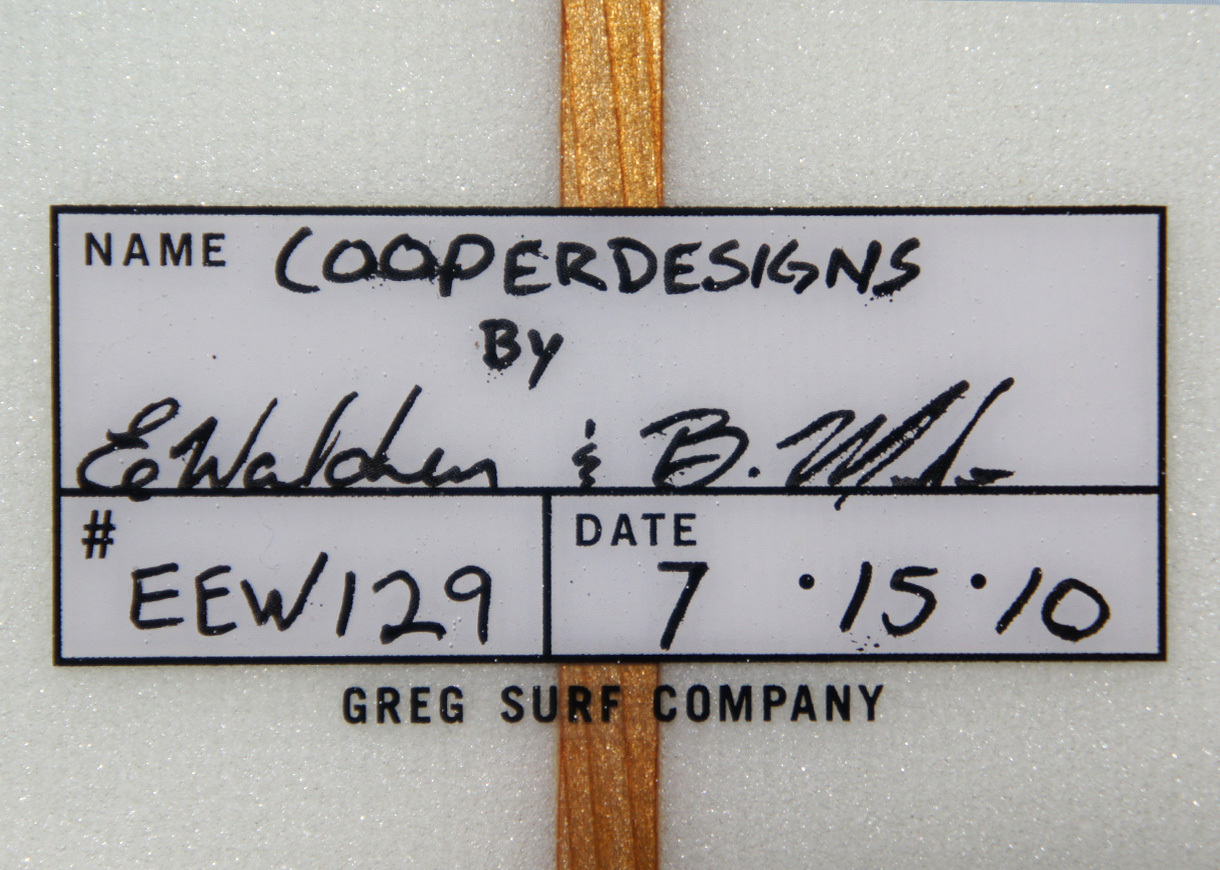 NAME COOPERDESIGNS
By
E Walden & B.
# DATE
EEW129 7 • 15 • 10
GREG SURF COMPANY